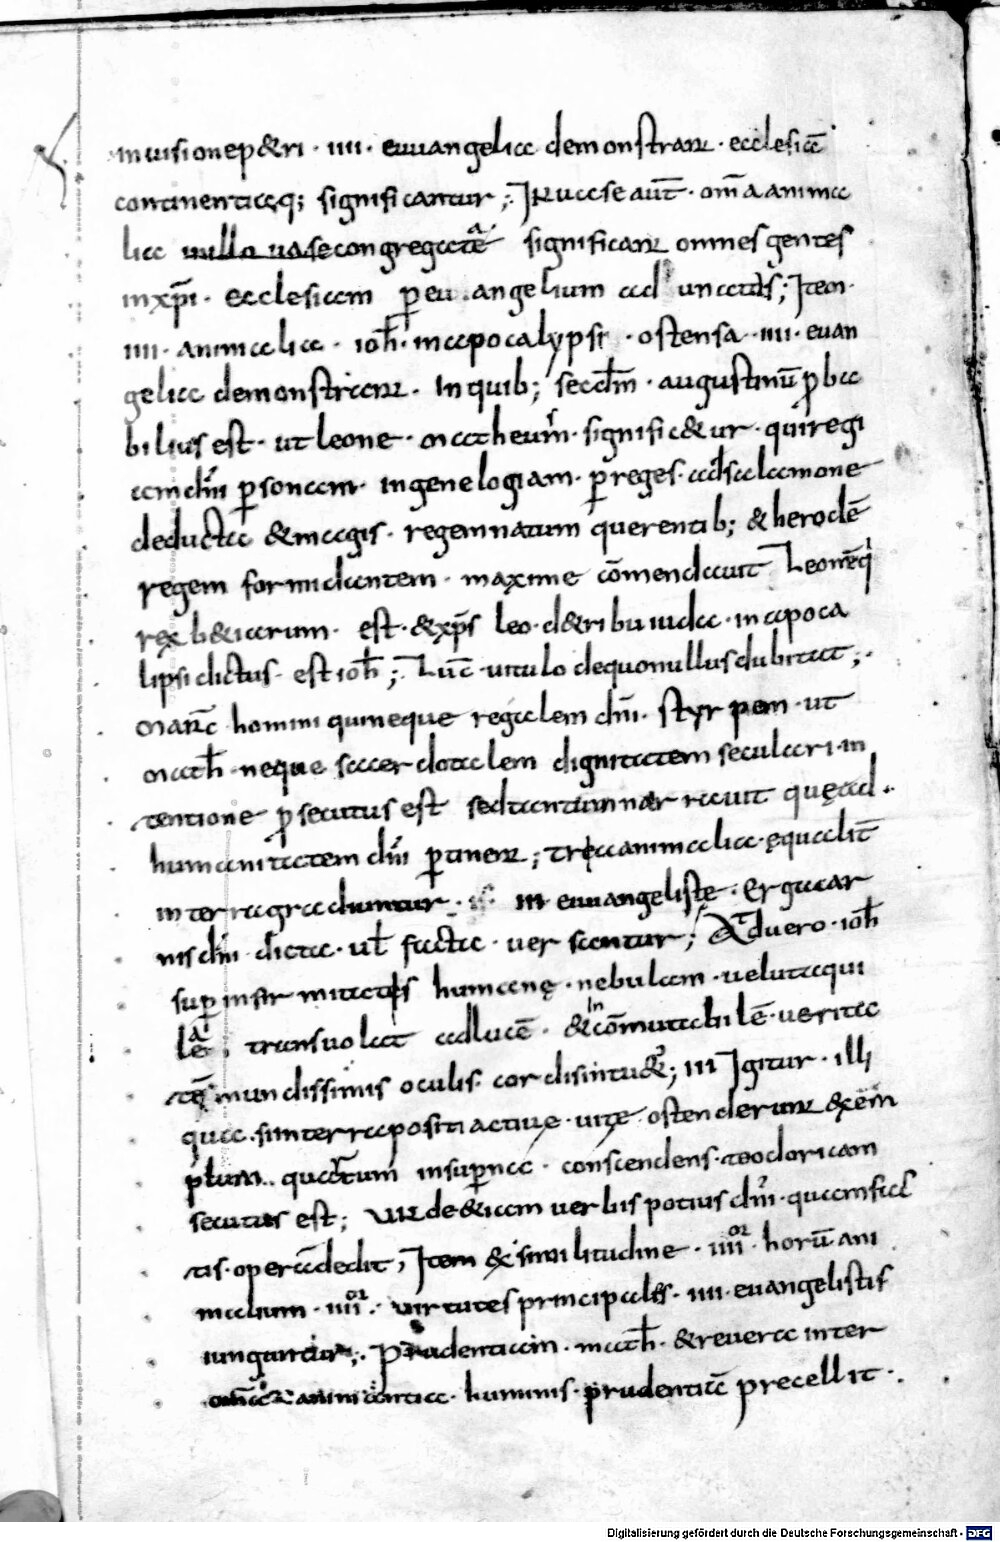 in uisione p&ri · iiii · euuangelia demonstrant · ecclesiā
continentiaq; significantur ;· In uase aūt · om̄a anima
lia nullo uase congregata significant omnes gentes
in xp̄i · ecclesiam p̄ euangelium ad unatas ; Item ·
iiii · animalia · ioħ · in apocalypsi · ostensa · iiii · euan
gelia demonstrant · In quib; sec̄dm · augustinū p̄ba
bilius est · ut leone · matheum · signific&ur · qui regi
am dn̄i p̄sonam · in genelogiam · p̄ reges · ad salamone
deducta & magis · regem natum querentib; & herodē
regem formidantem · maxime cōmendauit Leo n̄eq
rex b&iarum · est · & xp̄s leo · d& tribu iuda · in apoca
lipsi dictus · est ioħ ; Luc̄ · uitulo de quo nullus dubitat ;·
Marc̄ homini qui neque regalem dn̄i · styrpem · ut
math̄ · neque sacerdotalem dignitatem seculari · in
tentione p̄secutus est sed tantum narrauit quę ad ·
humanitatem dn̄i p̄tinent ; tręc animalia · ęqualit̄
interra gradiuntur · · iii euuangelistę · Erga car
nis dn̄i dicta · ul̄ facta · uersantur ; At uero · ioħ
sup̄ infirmitatis humanę · nebulam · uelut aqui
la transuolat ad lucē · & incōmutabilē · ueritā
tē mundissimis oculis · cordis intu&ur ; iii Igitur · illi
qua · sinterra positi actiue · uitę ostenderunt & exem
plum quartum in sup̄na · conscendens · teodoricam
secutus est ; Unde & iam uerbis potius dn̄i · quam fac
tis · operā dedit ; Item & similitudine · iiiior · horū ani
malium · iiiior · uirtutes principales · iiii · euangelistis
iunguntur ;· Prudentiam · math̄ · & reuera inter
animantia · huminis · prudentiā precellit ·
Digitalisierung gefördert durch die Deutsche Forschungsgemeinschaft - DFG